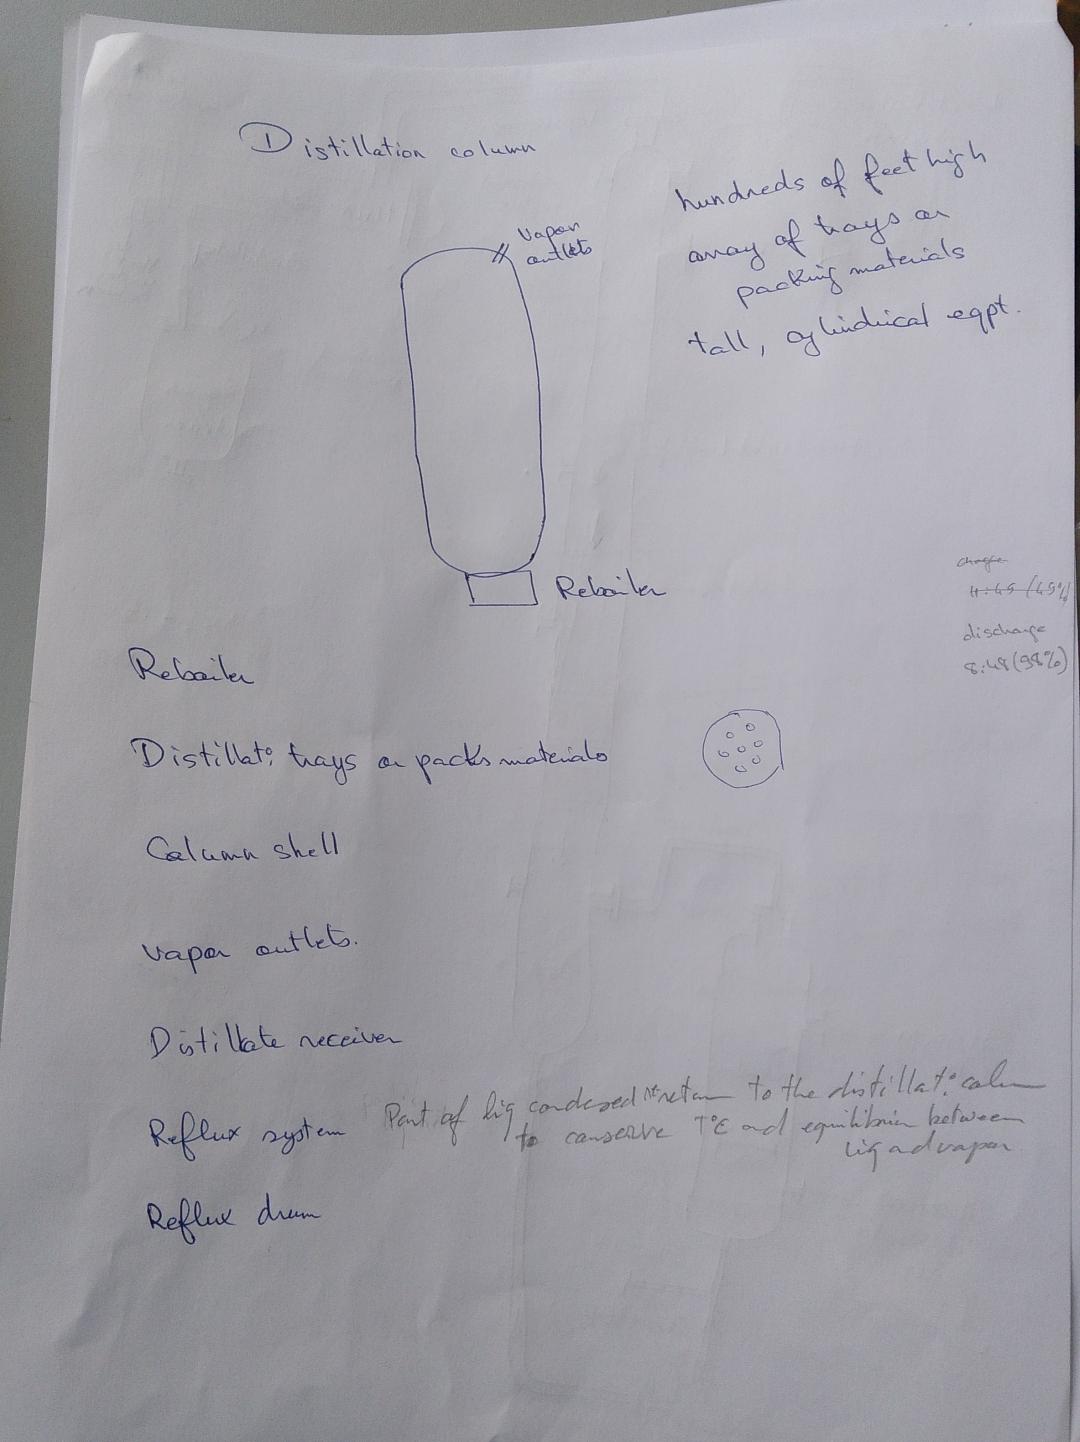 Distillation column
hundreds of feet high
array of trays or
packing materials
tall, cylindrical eqpt.
Vapor
outlets
Reboiler
charge
11:45 (45%)
discharge
8:48 (98%)
Reboiler
Distillat° trays or packs materials
Column shell
vapor outlets.
Distillate receiver
Reflux system
Part of liq condesed return to the distillat° column
to conserve T° and equilibrium between
liq and vapor
Reflux drum